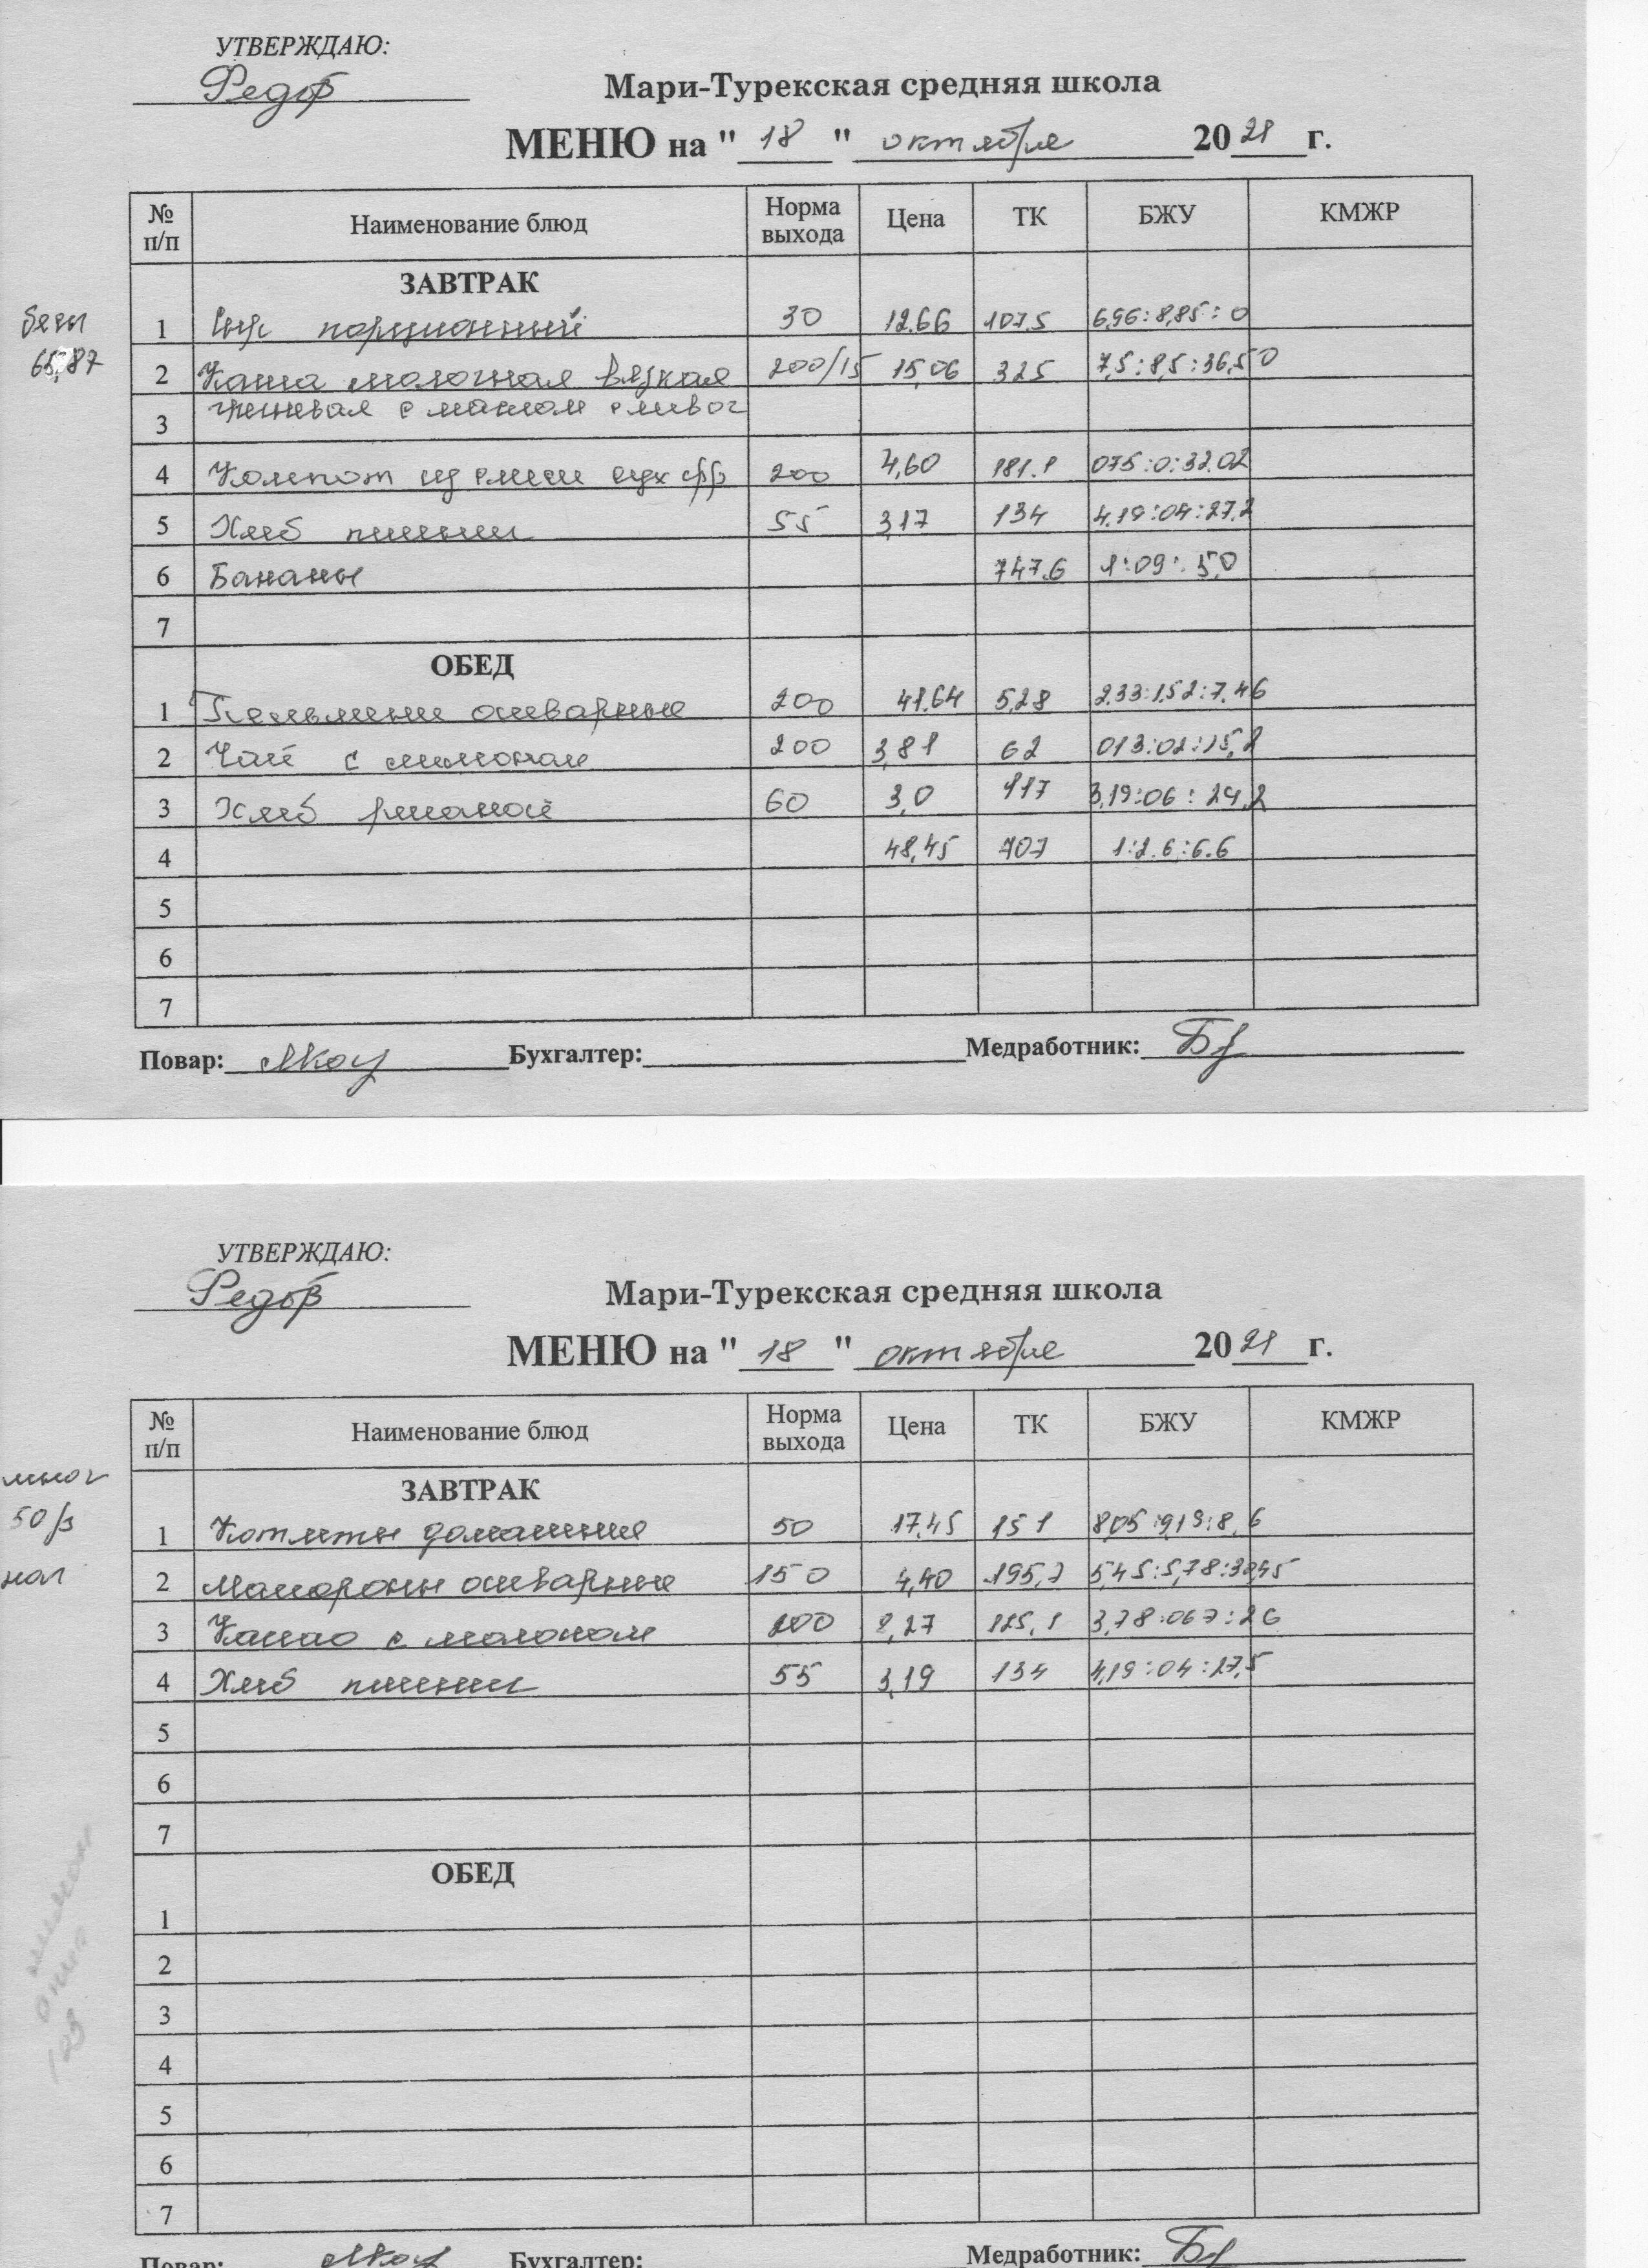 УТВЕРЖДАЮ:
Мари-Турекская средняя школа
МЕНЮ на "18" октября 2021 г.
№ п/п Наименование блюд Норма выхода Цена ТК БЖУ КМЖР
ЗАВТРАК
1 Сыр порционный 30 12.66 107.5 6,96:8,85:0
65,87
2 Каша молочная вязкая 200/15 15,06 325 7,5:8,5:36,50
3 гречневая с маслом сливоч
4 Компот из смеси сух фр 200 4,60 181.1 075:0:32.02
5 Хлеб пшенич 55 3,17 134 4.19:04:27,2
6 Бананы 747.6 1:09:5,0
7
ОБЕД
1 Пельмени отварные 200 41.64 528 2.33:152:7.46
2 Чай с лимоном 200 3,81 62 013:02:15,2
3 Хлеб ржаной 60 3,0 117 3,19:06:24,2
4 48,45 707 1:2.6:6.6
5
6
7
Повар: Бухгалтер: Медработник:
УТВЕРЖДАЮ:
Мари-Турекская средняя школа
МЕНЮ на "18" октября 2021 г.
№ п/п Наименование блюд Норма выхода Цена ТК БЖУ КМЖР
ЗАВТРАК
1 Котлеты домашние 50 17,45 151 8,05:9,19:8,6
2 Макароны отварные 150 4,40 195,7 5,45:5,78:30,45
3 Какао с молоком 200 8,27 125,1 3,78:067:26
4 Хлеб пшенич 55 3,19 134 4,19:04:27,5
5
6
7
ОБЕД
1
2
3
4
5
6
7
Повар: Бухгалтер: Медработник: